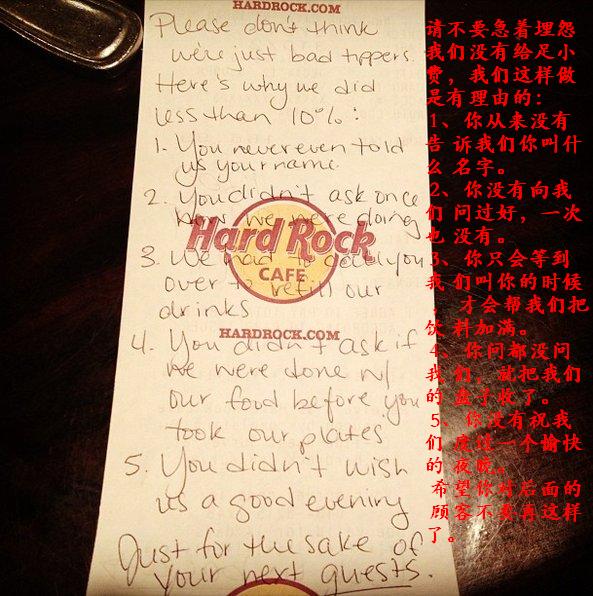 HARDROCK.COM
Please don't think
we're just bad tippers.
Here's why we did
less than 10%:
1. You never even told
us your name
2. You didn't ask once
how we were doing
Hard Rock
CAFE
3. We had to call you
over to refill our
drinks
HARDROCK.COM
4. You didn't ask if
we were done w/
our food before you
took our plates
5. You didn't wish
us a good evening
Just for the sake of
your next guests.
请不要急着埋怨
我们没有给足小
费，我们这样做
是有理由的：
1、你从来没有
告诉我们你叫什
么名字。
2、你没有向我
们问过好，一次
也没有。
3、你只会等到
我们叫你的时候
，才会帮我们把
饮料加满。
4、你问都没问
我们，就把我们
的盘子收了。
5、你没有祝我
们度过一个愉快
的夜晚。
希望你对后面的
顾客不要再这样
了。